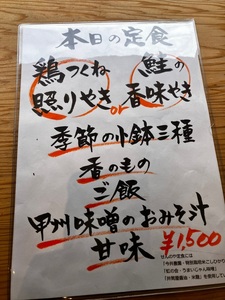 本日の定食
鶏つくね
照りやき
or
鮭の
香味やき
季節の小鉢三種
香のもの
ご飯
甲州味噌のおみそ汁
甘味
¥1,500